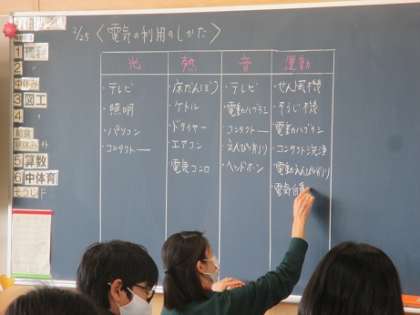 2/25 〈電気の利用のしかた〉
光 熱 音 運動
・テレビ ・床だんぼう ・テレビ ・せん風機
・照明 ・ケトル ・電動ハブラシ ・そうじ機
・パソコン ・ドライヤー ・コンタクト── ・電動ハブラシ
・コンタクト── ・エアコン ・えんぴつけずり ・コンタクト洗浄
・電気コンロ ・ヘッドホン ・電動えんぴつけずり
・電気自
1
2
中休み
3 図工
4
給食
昼休み
5 算数
6 中体育